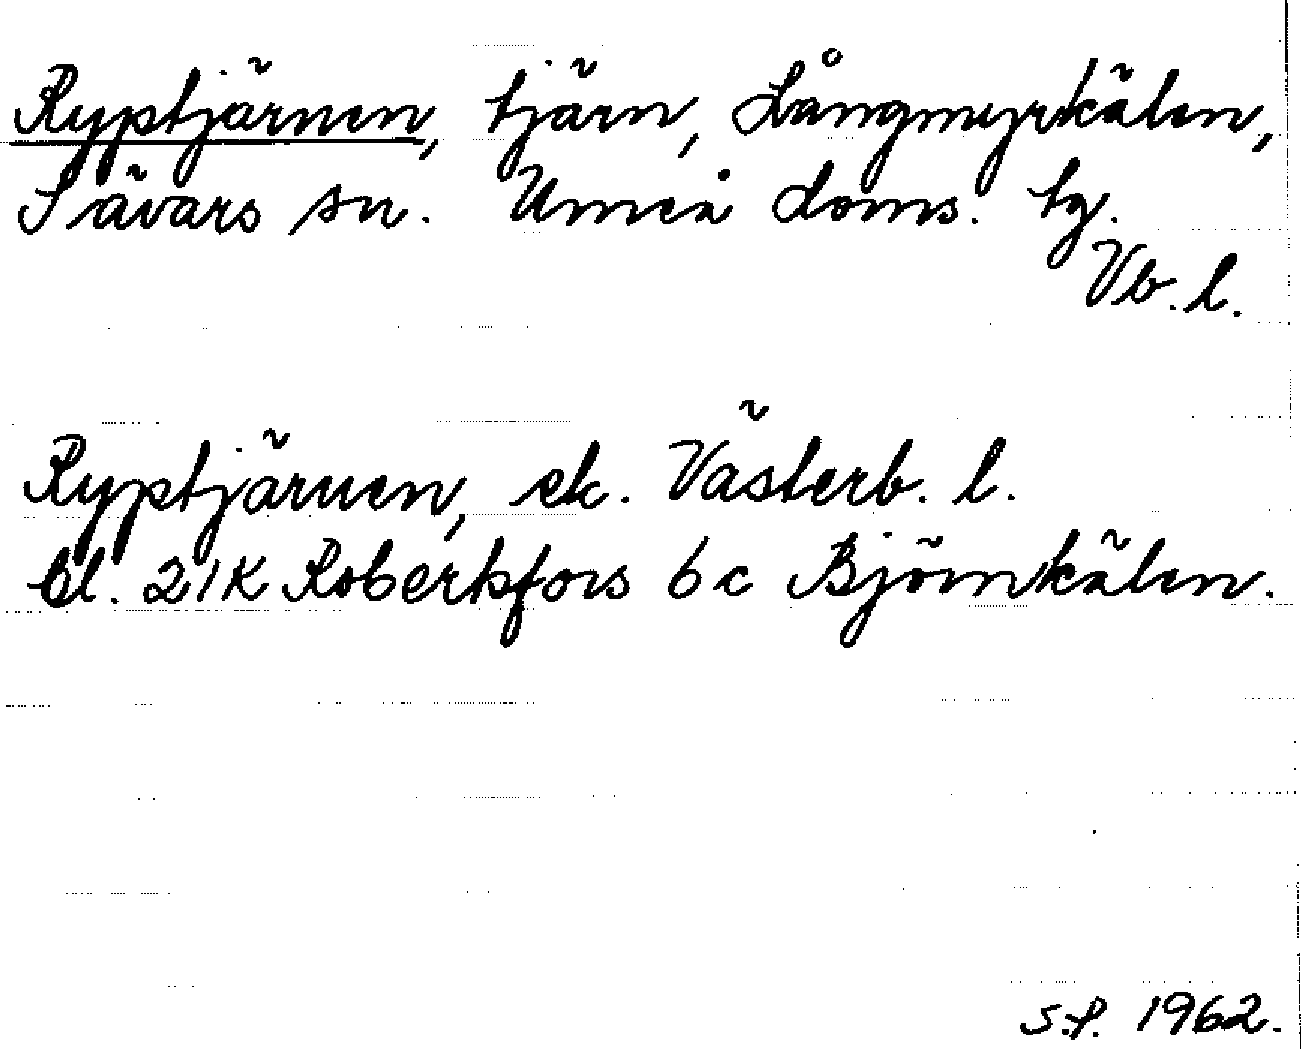 Ryptjärnen, tjärn, Långmyrkälen,
Sävars sn. Umeå doms. tg.
Vb. l.
Ryptjärnen, ek. Västerb. l.
bl. 21K Robertsfors 6 c Björnkälen.
S.f. 1962.